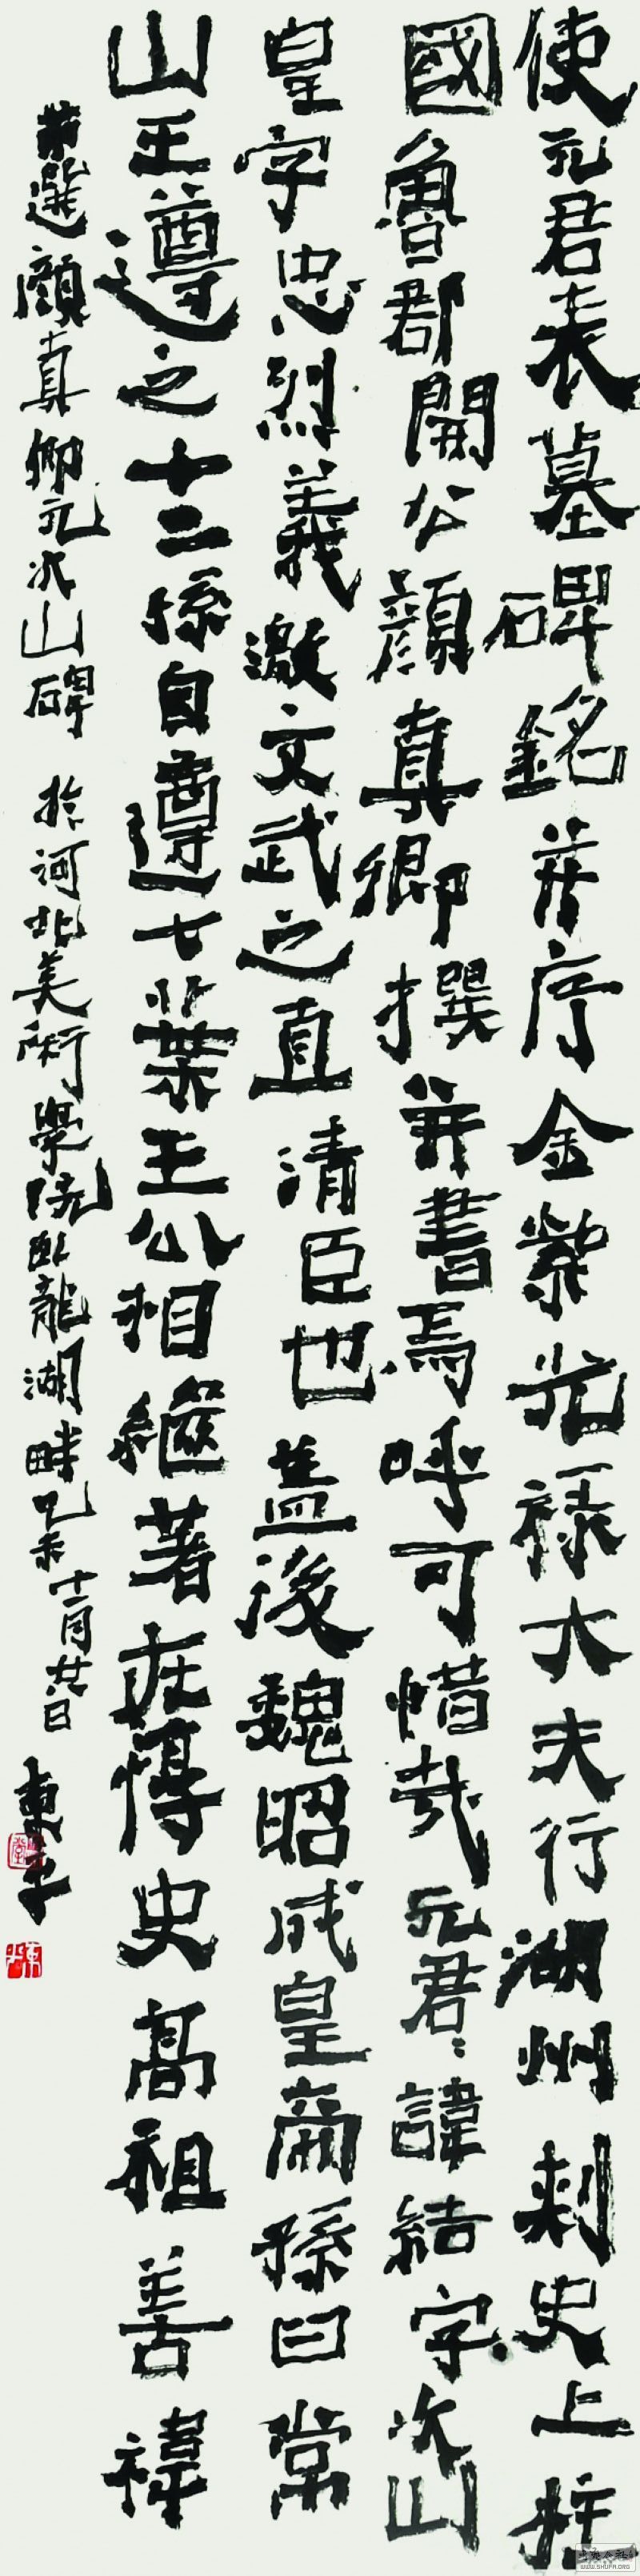 使元君表墓碑銘并序金紫光祿大夫行湖州刺史上柱
國魯郡開公顏真卿撰并書焉呼可惜哉元君〻諱結字次山
皇字忠烈義激文武之直清臣也蓋後魏昭成皇帝孫曰常
山王遵之十二孫自遵七葉王公相繼著在惇史高祖善禕
節選顏真卿元次山碑 於河北美術學院臥龍湖畔乙未十一月廿日
WWW.SHUFA.ORG